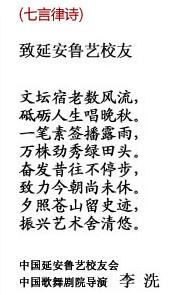 (七言律诗)
致延安鲁艺校友
文坛宿老数风流，
砥砺人生唱晚秋。
一笔素签播露雨，
万株劲秀绿田头。
奋发昔往不停步，
致力今朝尚未休。
夕照苍山留史迹，
振兴艺术舍清悠。
中国延安鲁艺校友会
中国歌舞剧院导演 李 洗